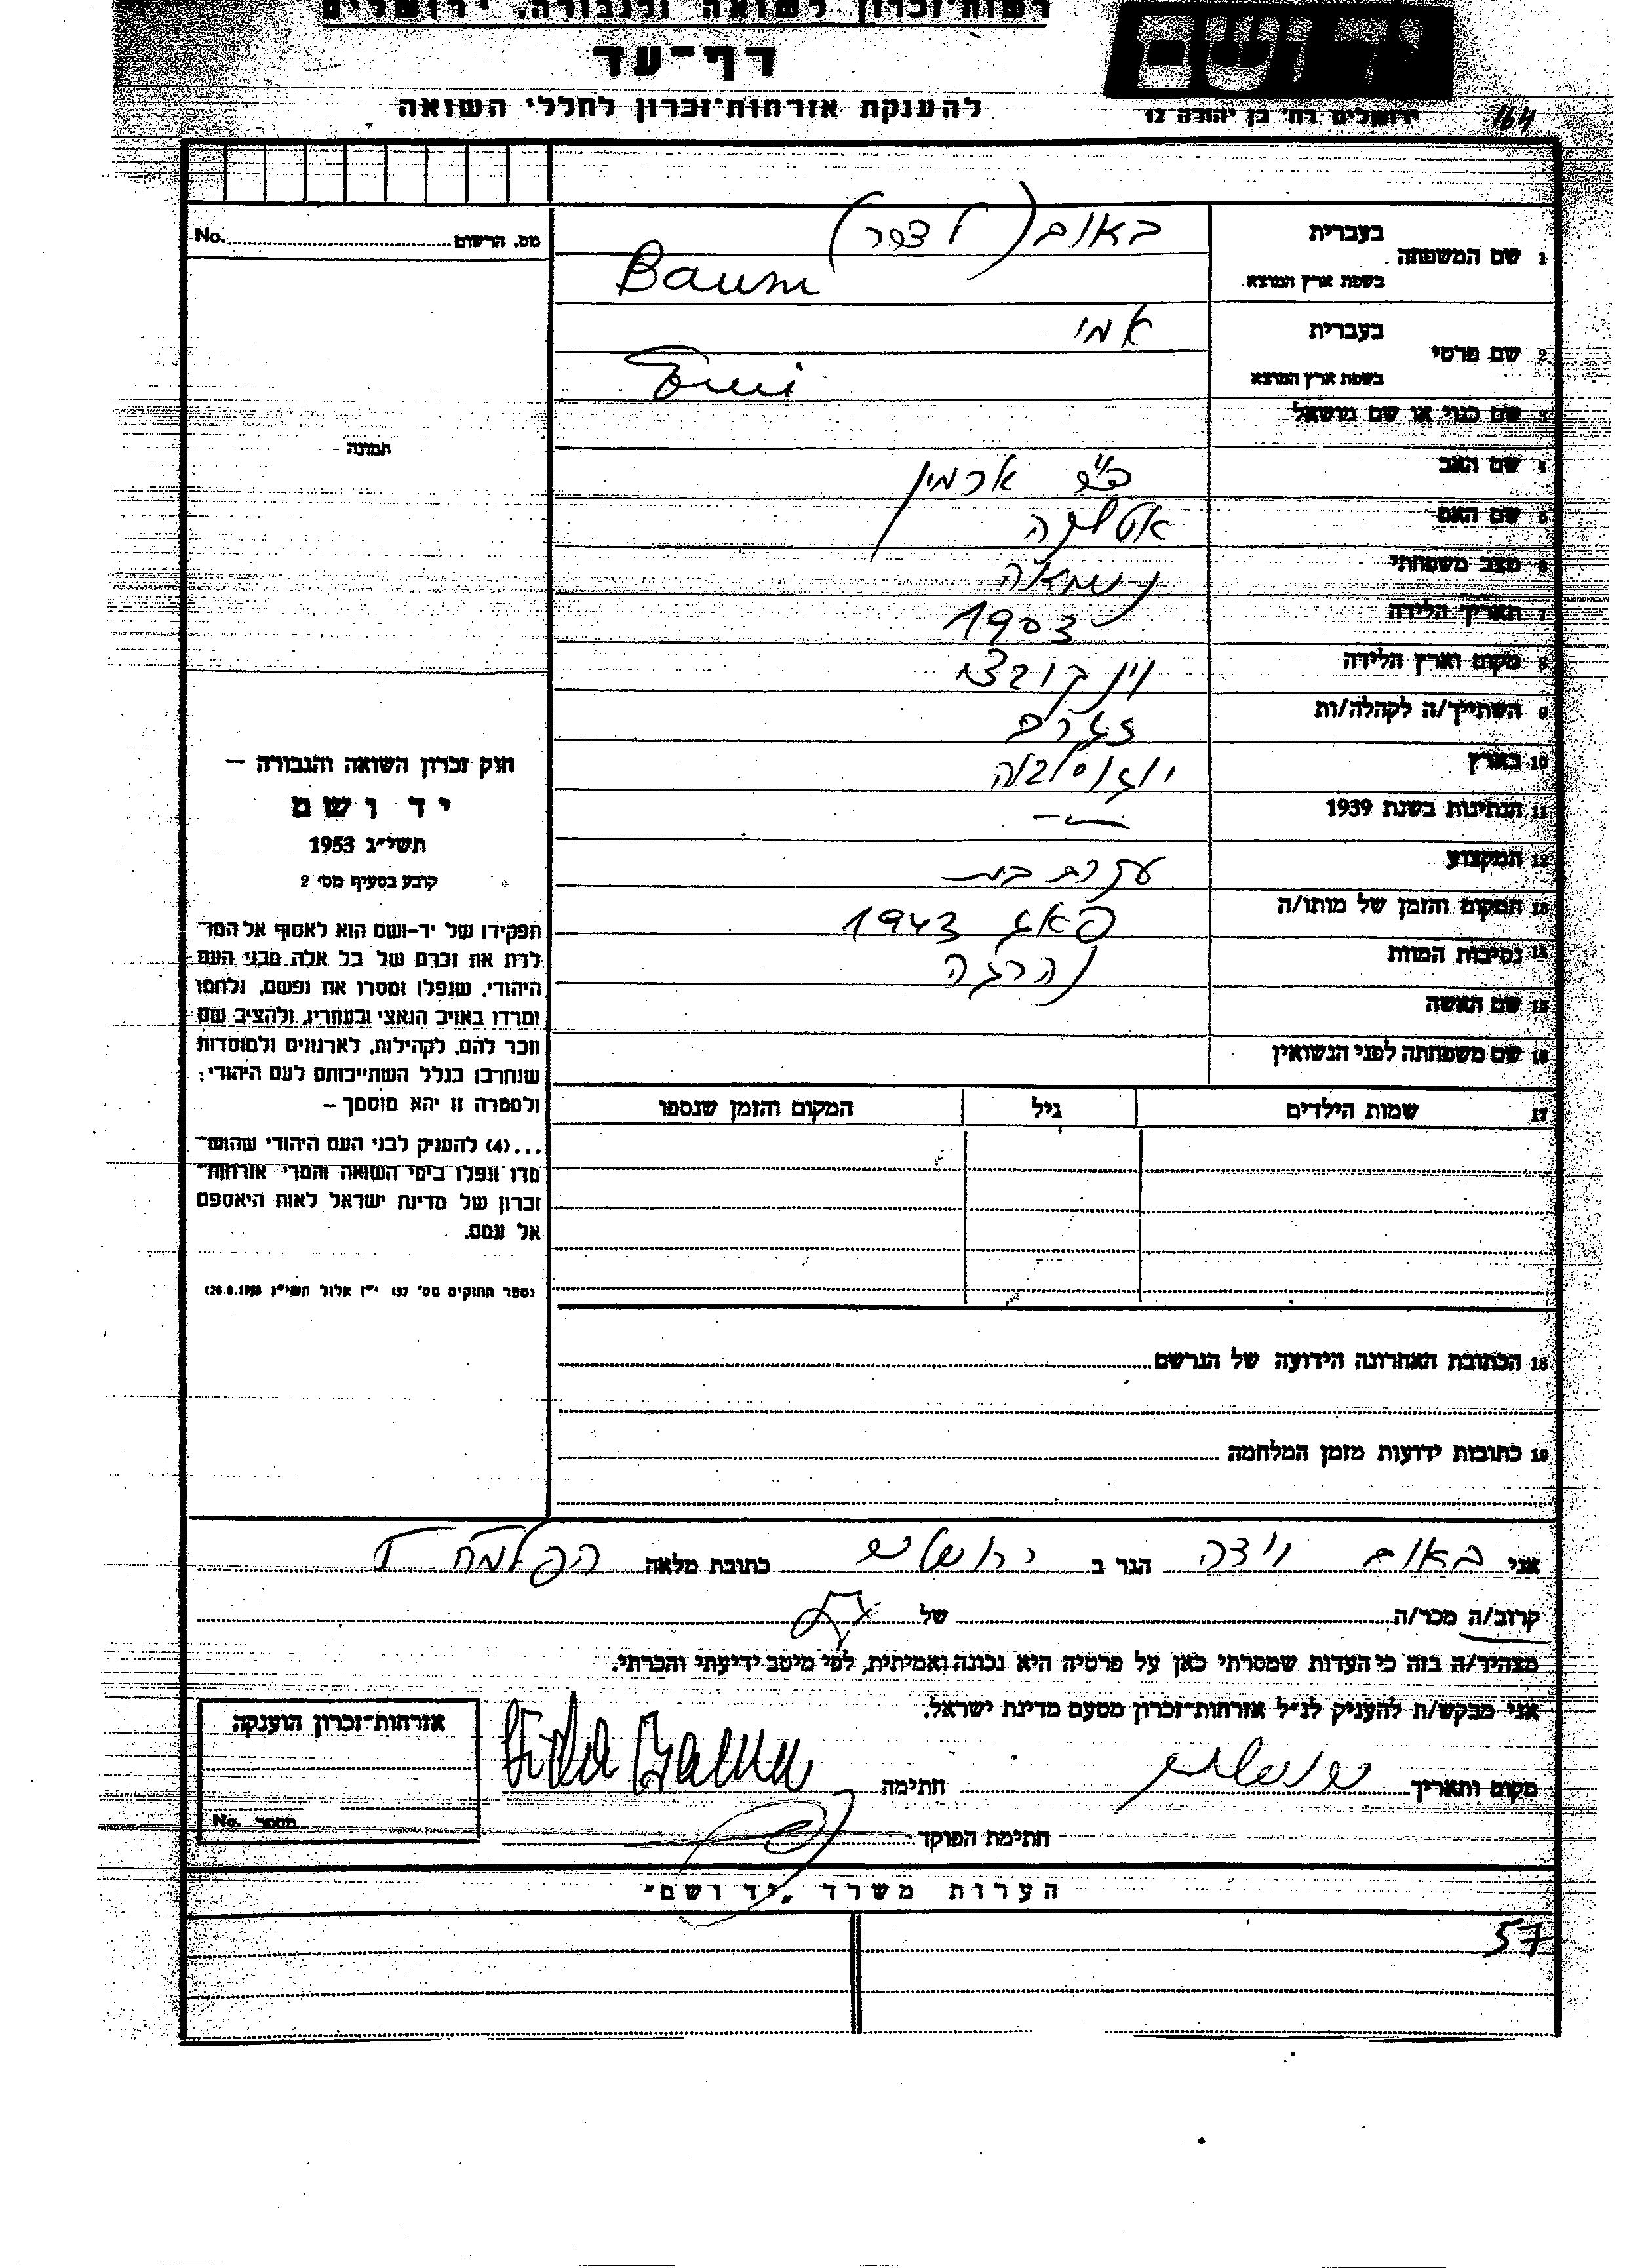 רשות־זכרון לשואה ולגבורה, ירושלים
יד ושם
דף־עד
להענקת אזרחות־זכרון לחללי השואה
ירושלים רח׳ בן יהודה 12
164
1 שם המשפחה בעברית באום
בשפת ארץ המוצא Baum
2 שם פרטי בעברית אמי
בשפת ארץ המוצא Emi
3 שם כנוי או שם מושאל
4 שם האב ארמין
5 שם האם
6 מצב משפחתי נשואה
7 תאריך הלידה 1903
8 מקום וארץ הלידה וינקובצי
9 השתייך/ה לקהלה/ות זגרב
10 בארץ יוגוסלביה
11 הנתינות בשנת 1939
12 המקצוע עקרת בית
13 המקום והזמן של מותו/ה פאג 1943
14 נסיבות המוות נהרגה
15 שם האשה
16 שם משפחתה לפני הנשואין
17 שמות הילדים גיל המקום והזמן שנספו
18 הכתובת האחרונה הידועה של הנרשם
19 כתובות ידועות מזמן המלחמה
No. מס. הרשום
תמונה
חוק זכרון השואה והגבורה –
יד ושם
תשי״ג 1953
קובע בסעיף מס׳ 2
תפקידו של יד-ושם הוא לאסוף אל המו־
לדת את זכרם של כל אלה מבני העם
היהודי, שנפלו ומסרו את נפשם, נלחמו
ומרדו באויב הנאצי ובעוזריו, ולהציב שם
וזכר להם, לקהילות, לארגונים ולמוסדות
שנחרבו בגלל השתייכותם לעם היהודי;
ולמטרה זו יהא מוסמך –
...(4) להעניק לבני העם היהודי שהוש־
מדו ונפלו בימי השואה והמרי אזרחות־
זכרון של מדינת ישראל לאות היאספם
אל עמם.
(ספר החוקים מס׳ 132 י״ז אלול תשי״ג 28.8.1953)
אני באום וידה הגר ב ירושלים כתובת מלאה הפלמ״ח
קרוב/ה מכר/ה של
מצהיר/ה בזה כי העדות שמסרתי כאן על פרטיה היא נכונה ואמיתית, לפי מיטב ידיעתי והכרתי.
אני מבקש/ת להעניק לנ״ל אזרחות־זכרון מטעם מדינת ישראל.
מקום ותאריך ירושלים חתימה Vida Baum
חתימת הפוקד
אזרחות־זכרון הוענקה
מספר No.
הערות משרד „יד ושם״
57